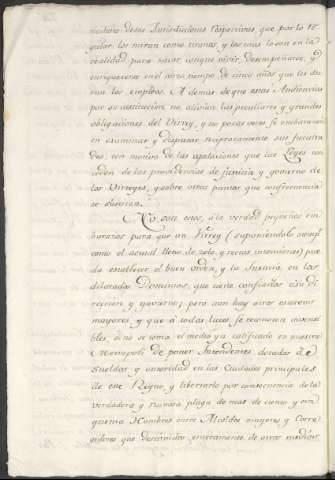 nisterio de sus Jurisdicciones respectivas, que por lo re-
gular los miran como tiranos, y los mas lo son en la
realidad para sacar con que vivir, desempeñarse, y
enriquecerse en el corto tiempo de cinco años que les du-
ran los empleos. A demas de que estas Audiencias
por su institucion no alivian las peculiares y grandes
obligaciones del Virrey, y no pocas veces se embarazan
en examinar y disputar reciprocamente sus faculta-
des, con motivo de las apelaciones que las Leyes con-
ceden de las providencias de justicia y govierno de
los Virreyes, y sobre otros puntos que con frecuencia
se ofrecian.
No son estos, á la verdad pequeños em-
barazos para que un Virrey (suponiendolo siempre
como el actual lleno de zelo, y rectas intenciones) pue-
da establecer el buen orden, y la Justicia en los
dilatados Dominios, que estan confiados á su di-
reccion y govierno; pero aun hay otros estorvos
mayores, y que á todas luces se reconocen invenci-
bles, si no se toma el medio ya calificado en nuestra
Metropoli de poner Intendentes dotados de
Sueldos y autoridad en las Ciudades principales
de este Reyno, y libertarlo por consecuencia de la
verdadera y ruinosa plaga de mas de ciento y cin-
quenta Hombres entre Alcaldes mayores y Corre-
gidores que destituidos enteramente de otros medios